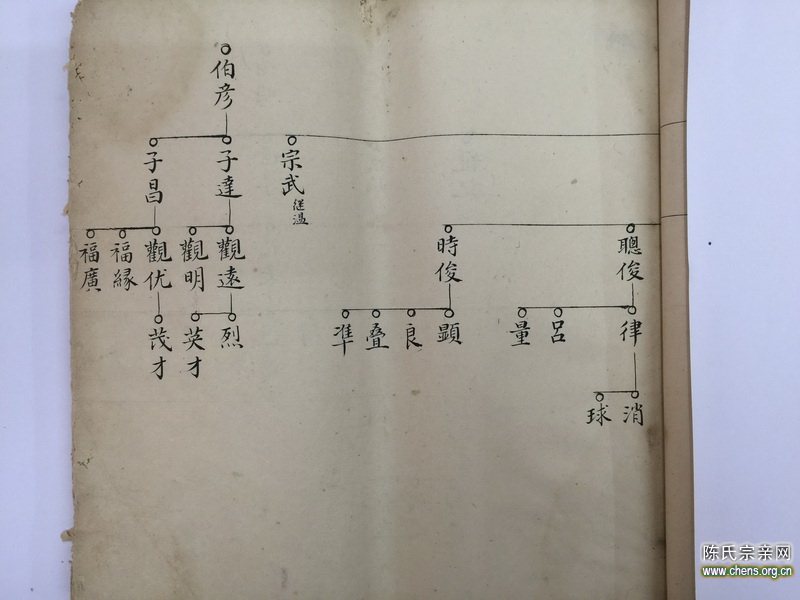 聰俊
時俊
律
呂
量
顯
良
叠
準
消
球
宗武
從溫
伯彦
子達
子昌
觀遠
觀明
觀优
福緣
福廣
烈
英才
茂才
陈氏宗亲网
www.chens.org.cn